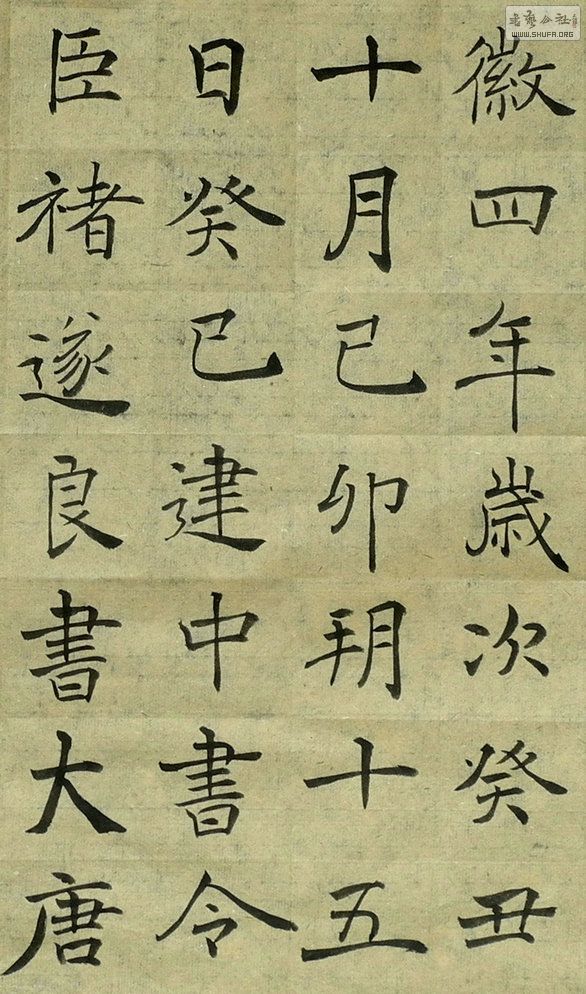 徽四年歲次癸丑
十月己卯朔十五
日癸巳建中書令
臣褚遂良書大唐
书艺公社
WWW.SHUFA.ORG